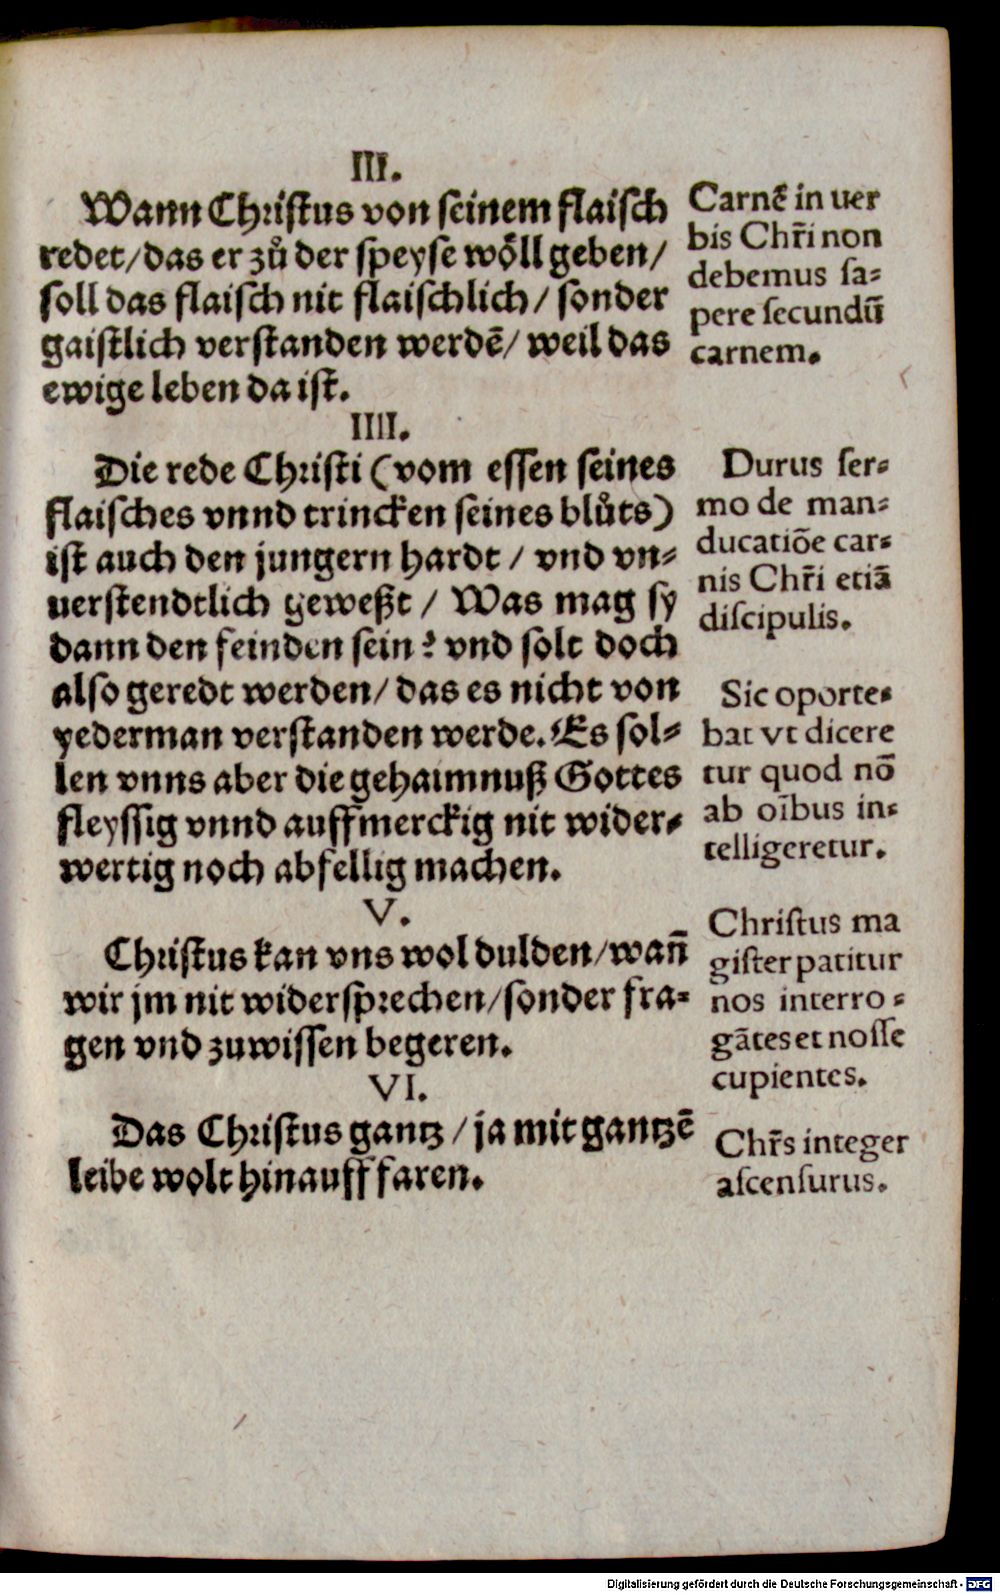 III.
Wann Christus von seinem flaisch
redet/das er zů der speyse wo̊ll geben/
soll das flaisch nit flaischlich/ sonder
gaistlich verstanden werdē/ weil das
ewige leben da ist.
Carnē in uer
bis Chr̄i non
debemus sa⸗
pere secundū
carnem.
IIII.
Die rede Christi (vom essen seines
flaisches vnnd trincken seines blůts)
ist auch den jungern hardt / vnd vn⸗
uerstendtlich geweßt / Was mag sy
dann den feinden sein? vnd solt doch
also geredt werden/ das es nicht von
yederman verstanden werde. Es sol⸗
len vnns aber die gehaimnuß Gottes
fleyssig vnnd auffmerckig nit wider⸗
wertig noch abfellig machen.
Durus ser⸗
mo de man⸗
ducatiōe car⸗
nis Chr̄i etiā
discipulis.
Sic oporte⸗
bat vt dicere
tur quod nō
ab oībus in⸗
telligeretur.
V.
Christus kan vns wol dulden/wan̄
wir jm nit widersprechen/sonder fra⸗
gen vnd zuwissen begeren.
Christus ma
gister patitur
nos interro⸗
gātes et nosse
cupientes.
VI.
Das Christus gantz /ja mit gantzē
leibe wolt hinauff faren.
Chr̄s integer
ascensurus.
Digitalisierung gefördert durch die Deutsche Forschungsgemeinschaft - DFG